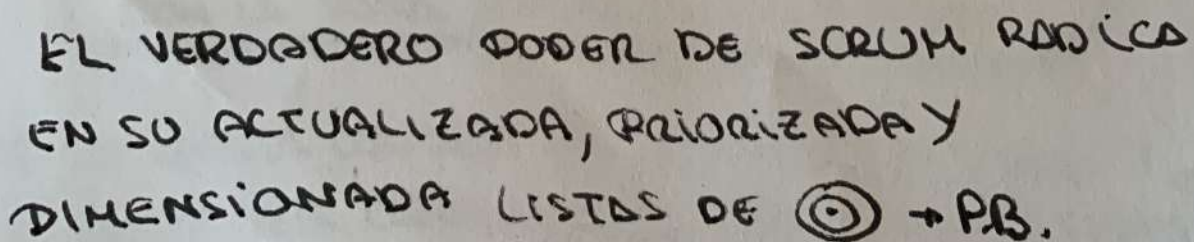 EL VERDADERO PODER DE SCRUM RADiCA
EN SU ACTUALIZADA, PRiORiZADA Y
DIMENSiONADA LISTAS DE ◎ → P.B.